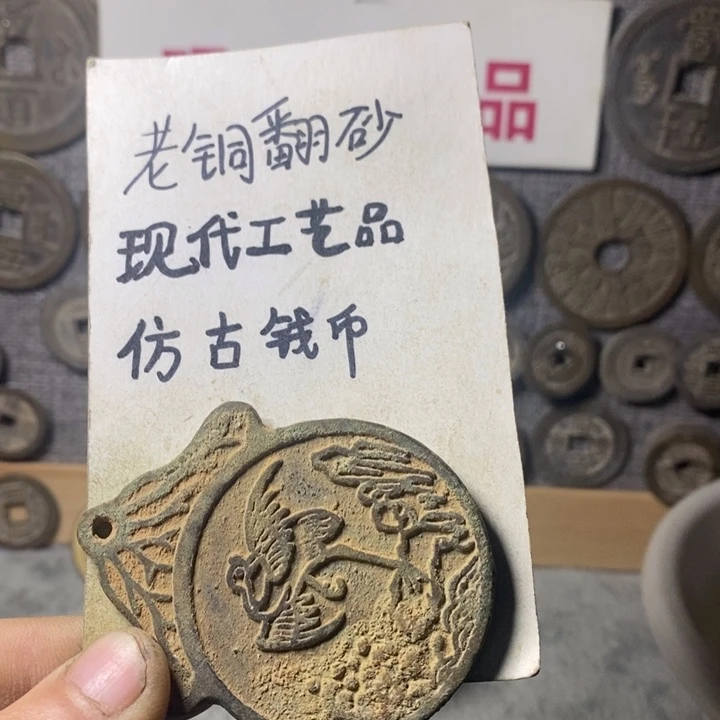 品
老铜翻砂
现代工艺品
仿古钱币